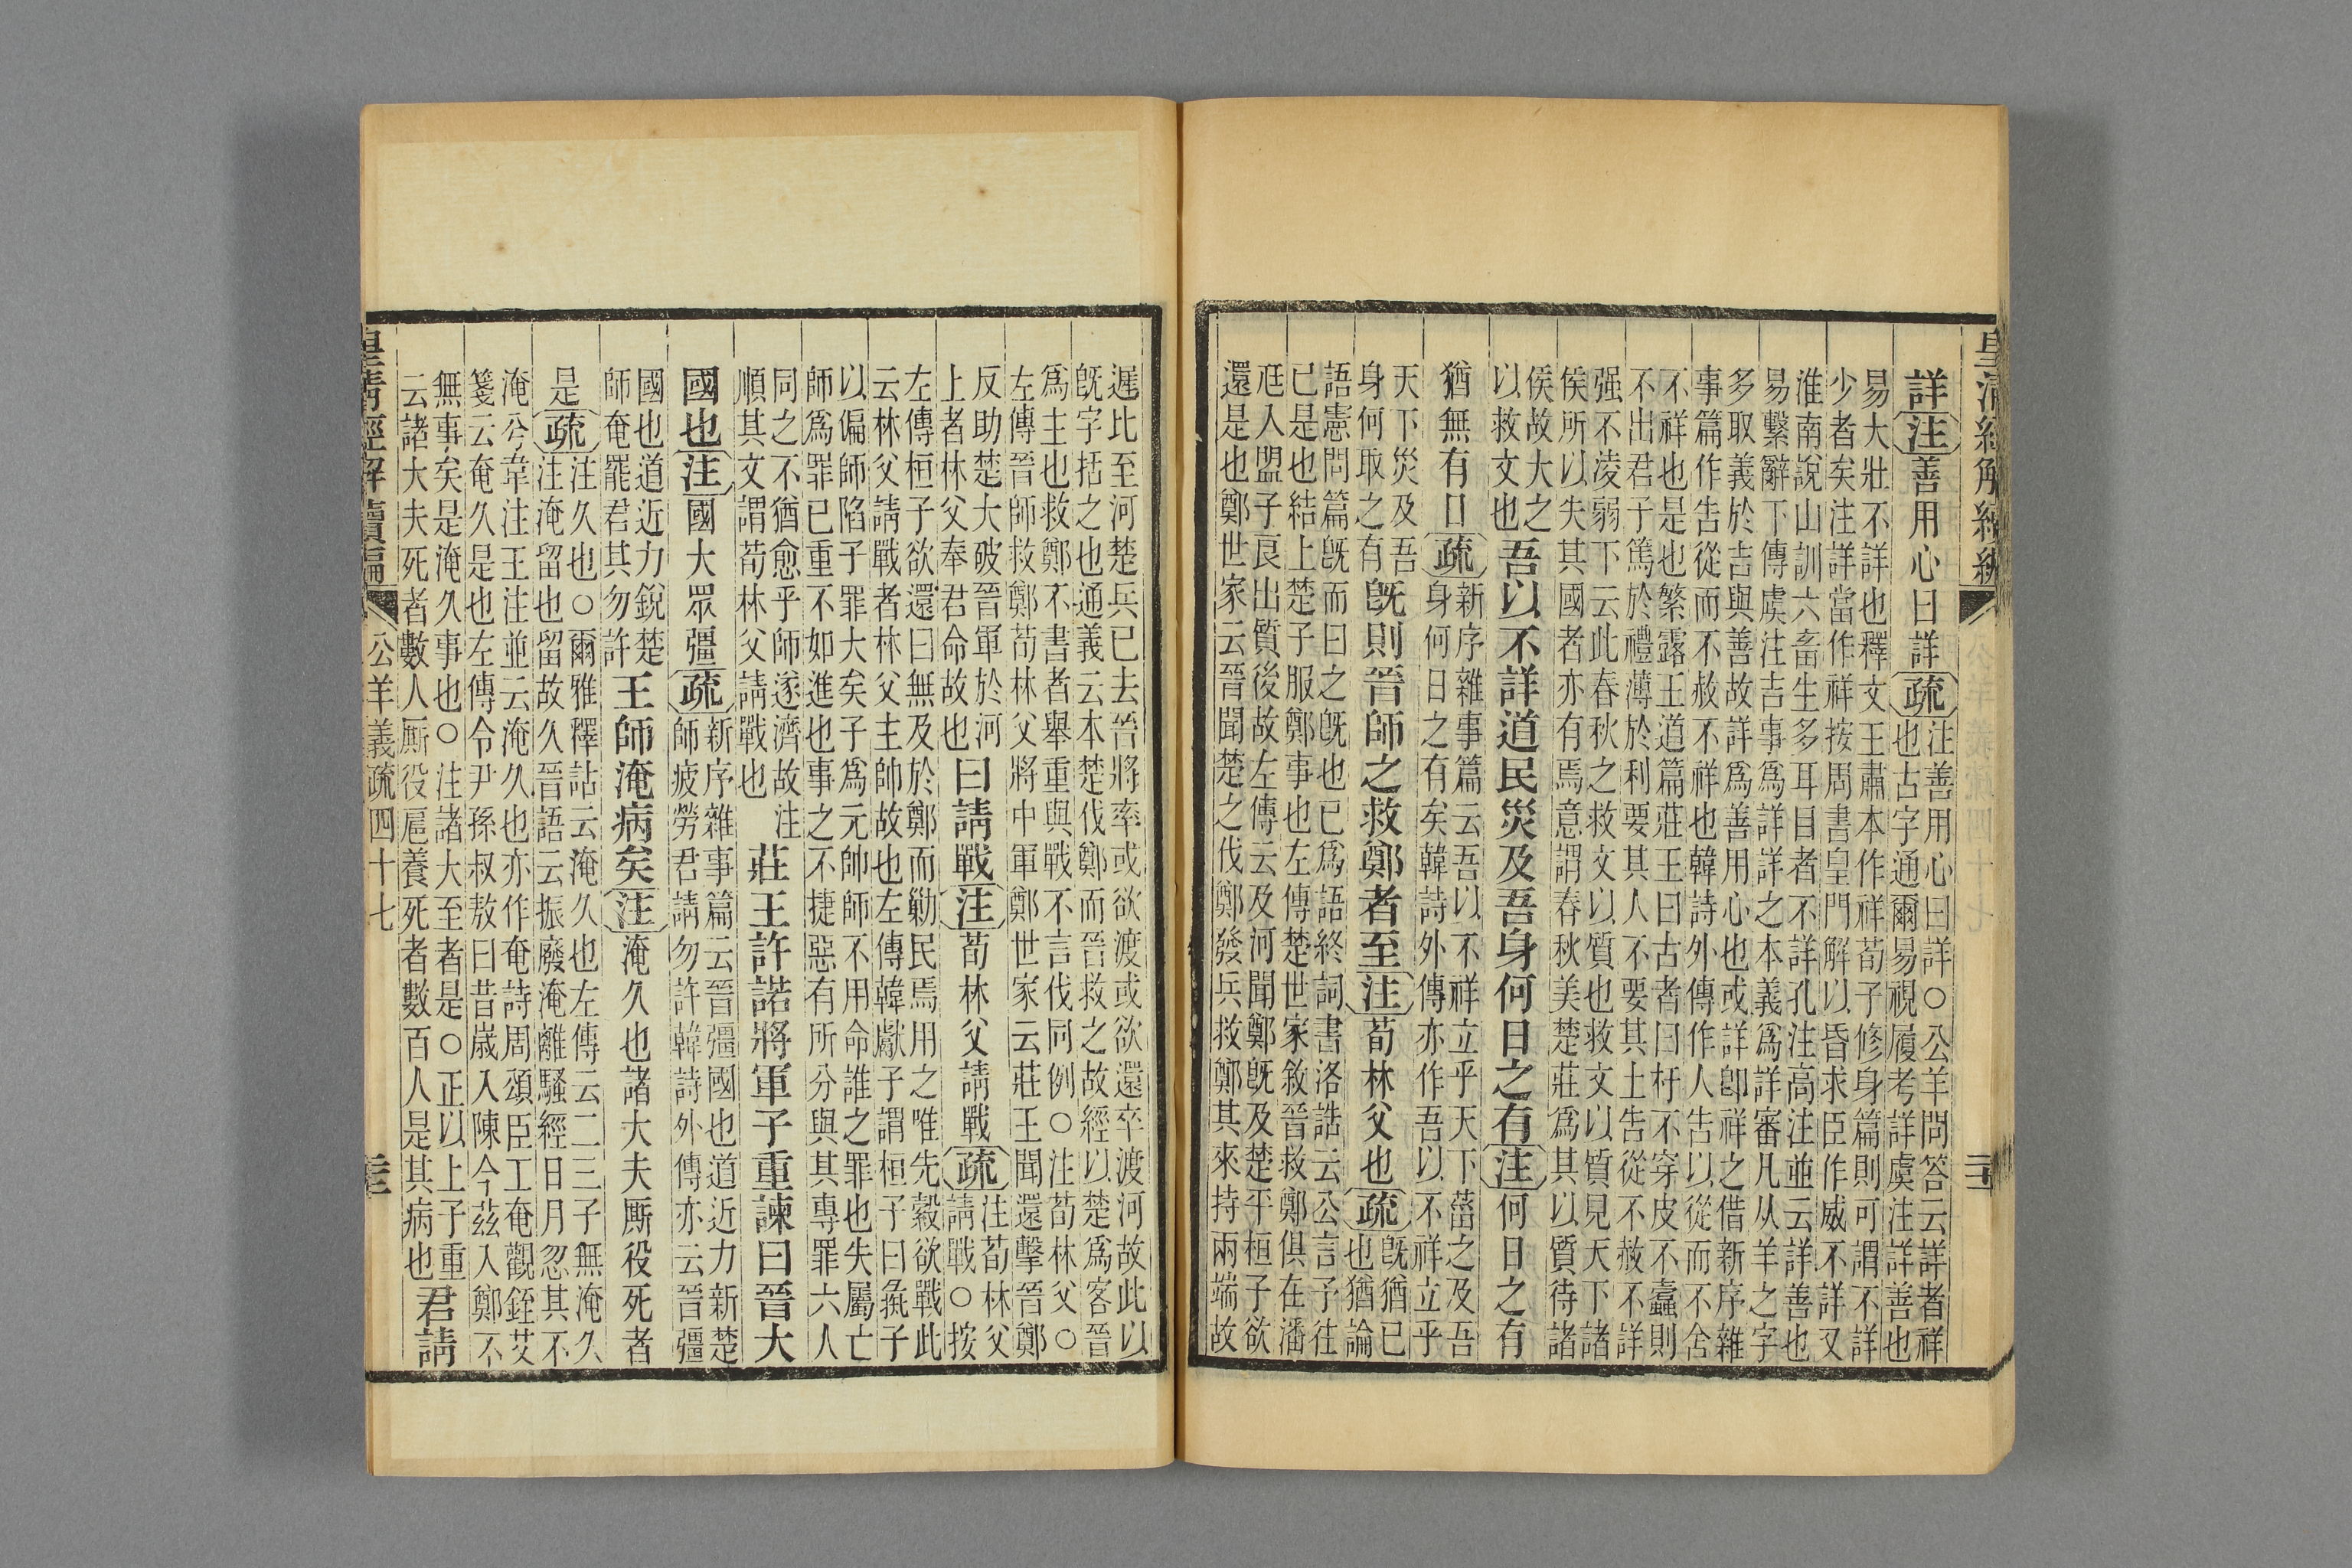 皇清經解續編
詳注善用心曰詳疏注善用心曰詳○公羊問答云詳者祥
也古字通爾易視履考詳虞注詳善也
易大壯不詳也釋文王肅本作祥荀子修身篇則可謂不詳
少者矣注詳當作祥按周書皇門解以昏求臣作威不詳又
淮南說山訓六畜生多耳目者不詳孔注高注並云詳善也
易繫辭下傳虞注吉事爲詳詳之本義爲詳審凡从羊之字
多取義於吉與善故詳爲善用心也或詳卽祥之借新序雜
事篇作告從而不赦不祥也韓詩外傳作人告以從而不舍
不祥也是也繁露王道篇莊王曰古者曰杅不穿皮不蠹則
不出君子篤於禮薄於利要其人不要其土告從不赦不詳
强不凌弱下云此春秋之救文以質也救文以質見天下諸
侯所以失其國者亦有焉意謂春秋美楚莊爲其以質待諸
侯故大之
以救文也吾以不詳道民災及吾身何日之有注何日之有
猶無有日疏新序雜事篇云吾以不祥立乎天下菑之及吾
身何日之有矣韓詩外傳亦作吾以不祥立乎
天下災及吾
身何取之有旣則晉師之救鄭者至注荀林父也疏旣猶已
也猶論
語憲問篇旣而曰之旣也已爲語終詞書洛誥云公言予往
已是也結上楚子服鄭事也左傳楚世家敘晉救鄭俱在潘
尫入盟子良出質後故左傳云及河聞鄭旣及楚平桓子欲
還是也鄭世家云晉聞楚之伐鄭發兵救鄭其來持兩端故
遲比至河楚兵已去晉將率或欲渡或欲還卒渡河故此以
旣字括之也通義云本楚伐鄭而晉救之故經以楚爲客晉
爲主也救鄭不書者舉重與戰不言伐同例○注荀林父○
左傳晉師救鄭荀林父將中軍鄭世家云莊王聞還擊晉鄭
反助楚大破晉軍於河
上者林父奉君命故也曰請戰注荀林父請戰疏注荀林父
請戰○按
左傳桓子欲還曰無及於鄭而勦民焉用之唯先縠欲戰此
云林父請戰者林父主帥故也左傳韓獻子謂桓子曰彘子
以偏師陷子罪大矣子爲元帥師不用命誰之罪也失屬亡
師爲罪已重不如進也事之不捷惡有所分與其專罪六人
同之不猶愈乎師遂濟故注
順其文謂荀林父請戰也莊王許諾將軍子重諫曰晉大
國也注國大眾彊疏新序雜事篇云晉彊國也道近力新楚
師疲勞君請勿許韓詩外傳亦云晉彊
國也道近力銳楚
師奄罷君其勿許王師淹病矣注淹久也諸大夫厮役死者
是疏注久也○爾雅釋詁云淹久也左傳云二三子無淹久
注淹留也留故久晉語云振廢淹離騷經日月忽其不
淹兮韋注王注並云淹久也亦作奄詩周頌臣工奄觀銍艾
箋云奄久是也左傳令尹孫叔敖曰昔歲入陳今茲入鄭不
無事矣是淹久事也○注諸大至者是○正以上子重
云諸大夫死者數人厮役扈養死者數百人是其病也君請
皇清經解續編 公羊義疏四十七